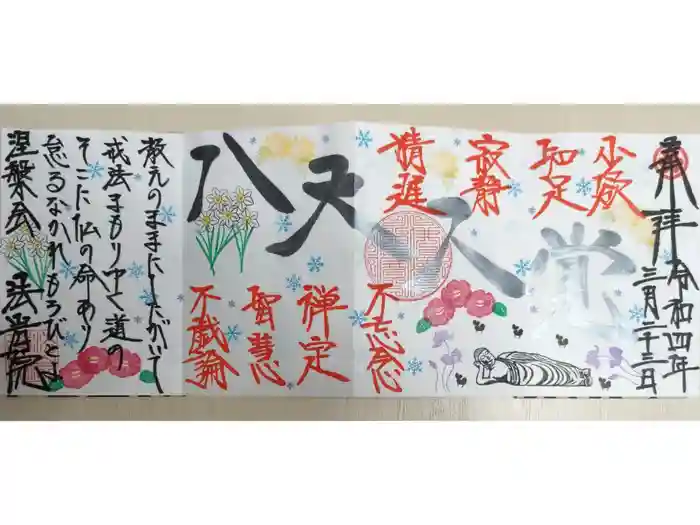 奉拝
令和四年
三月二十三日
少欲
知足
寂静
精進
八大人覚
不忘念
禅定
智慧
不戯論
教えのままにしたがいて
戒法まもりゆく道の
そこに仏の命あり
怠るなかれもろびとよ
涅槃会 法常院